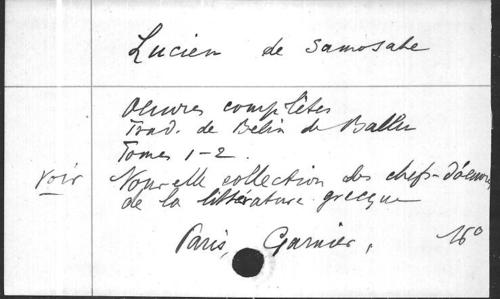 Lucien de Samosate
Oeuvres complètes
Trad. de Belin de Ballu
Tomes 1-2.
voir Nouvelle collection des chefs-d'oeuvre
de la littérature grecque
Paris, Garnier, 16°